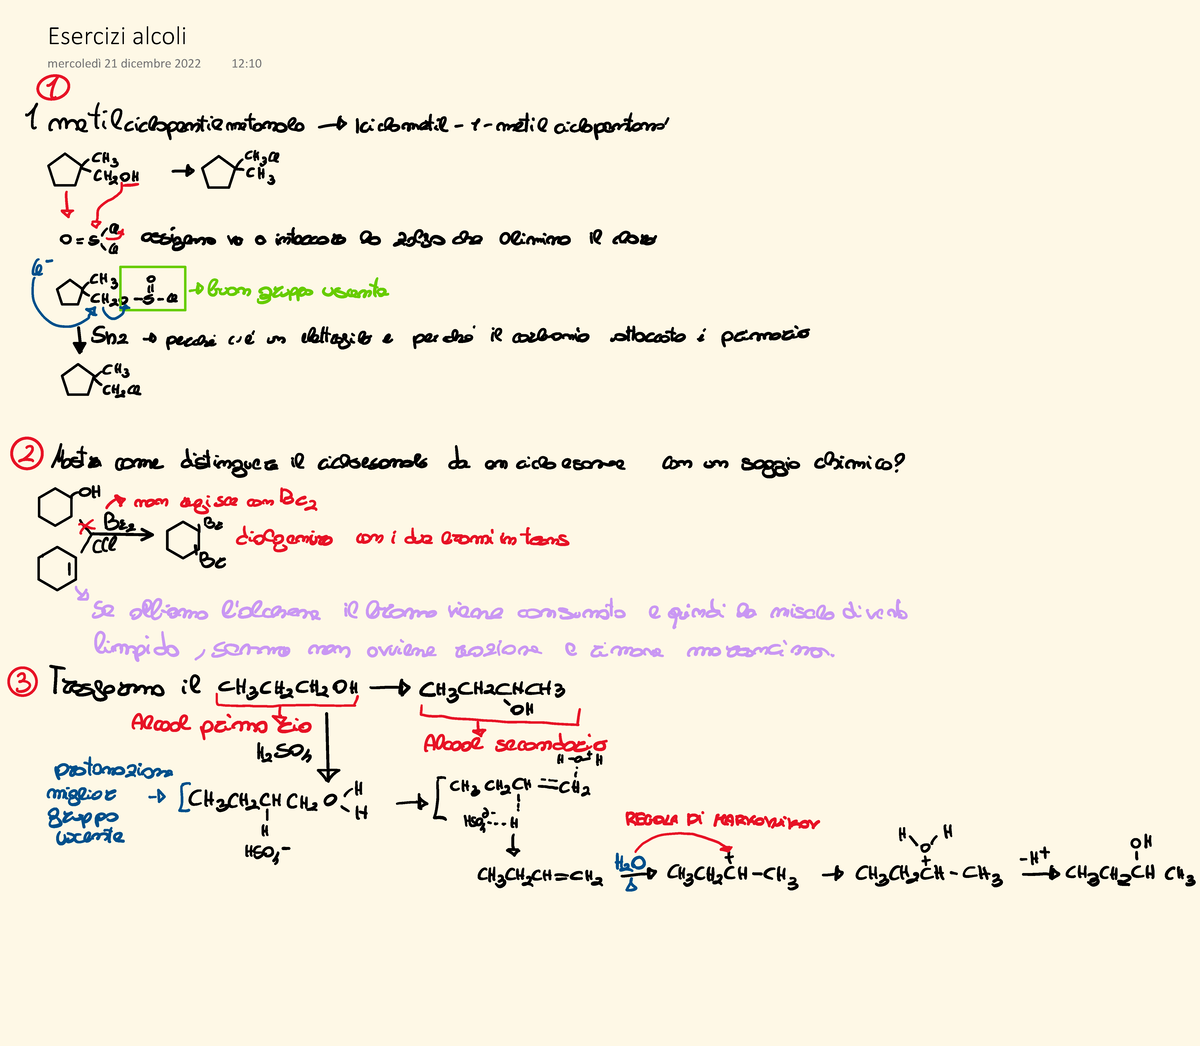 Esercizi alcoli
mercoledì 21 dicembre 2022 12:10
1
1 metilciclopentilmetanolo → 1clorometil-1-metil ciclopentano
CH3
CH2OH
→
CH2Cl
CH3
O=S
Cl
Cl
ossigeno va a intaccare lo zolfo che elimina il cloro
Cl-
CH3
CH2O-S-Cl
O
→ buon gruppo uscente
Sn2 → perché c'è un elettrofilo e perché il carbonio attaccato è primario
CH3
CH2Cl
2 Mostra come distinguere il cicloesanolo da un cicloesene con un saggio chimico?
OH
non agisce con Br2
Br2
CCl
Br
Br
dialogenuro con i due bromi in trans
Se abbiamo l'alchene il bromo viene consumato e quindi la miscela diventa
limpida, sennò non avviene reazione e rimane marroncina.
3 Trasforma il CH3CH2CH2OH → CH3CH2CHCH3
OH
Alcool primario
Alcool secondario
H2SO4
protonazione
miglior
gruppo
uscente
→ [CH3CH2CH CH2O
H
H
H
HSO4-
→ [CH3 CH2CH=CH2
H-O+H
HSO4δ-----H
CH3CH2CH=CH2
H2O
Δ
REGOLA DI MARKOVNIKOV
+
CH3CH2CH-CH3
→
H
H
O
+
CH3CH2CH-CH3
-H+
→
OH
CH3CH2CH CH3